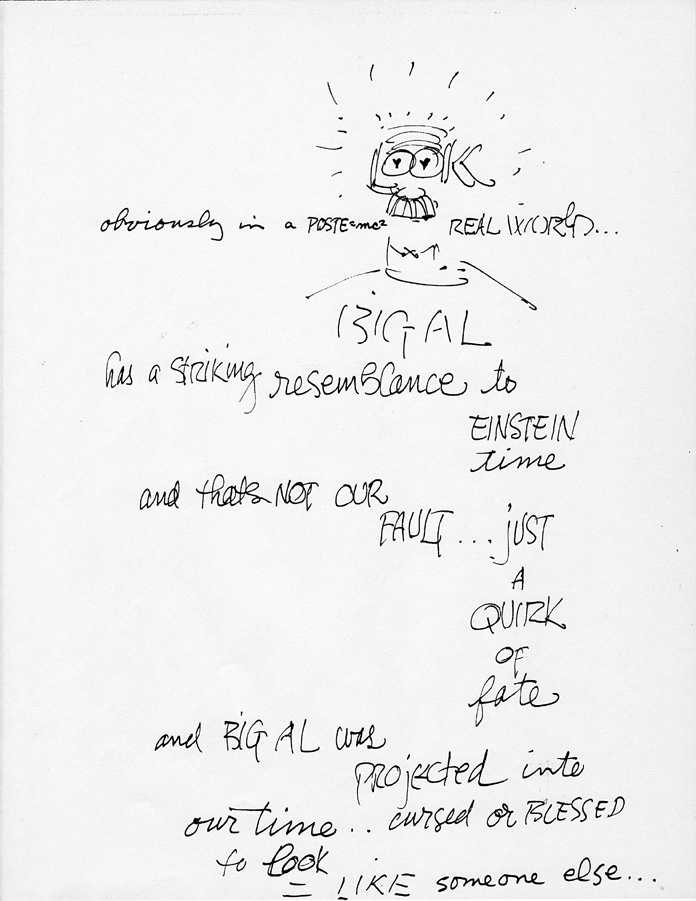 LOOK
obviously in a POSTE=mc² REAL WORLD...
BIG AL
has a STRIKING resemBlance to
EINSTEIN
time
and thats NOT OUR
FAULT...jUST
A
QUIRK
OF
fate
and BIG AL was
PROjected into
our time.. cursed or BLESSED
to look
= LIKE someone else...